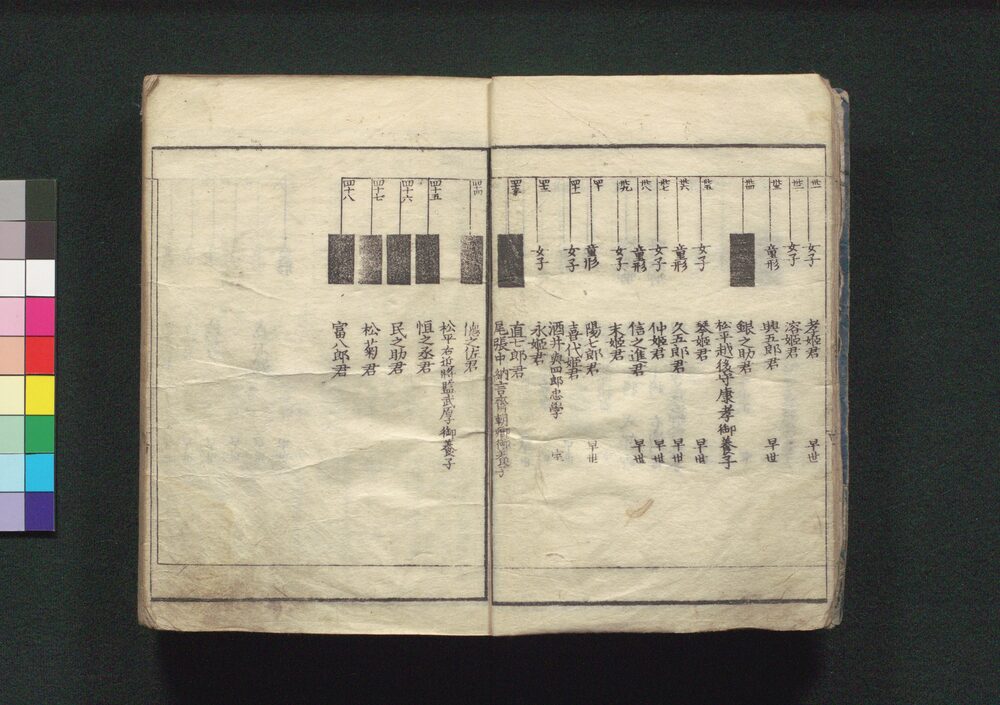 卅一 女子 孝姫君 早世
卅二 女子 溶姫君
卅三 童形 興五郎君 早世
卅四 銀之助君
松平越後守康孝御養子
卅五 女子 琴姫君 早世
卅六 童形 久五郎君 早世
卅七 女子 仲姫君 早世
卅八 童形 信之進君 早世
卅九 女子 末姫君
四十 童形 陽七郎君 早世
四十一 女子 喜代姫君
酒井與四郎忠學 室
四十二 女子 永姫君
四十三 直七郎君
尾張中納言齊朝卿御養子
四十四 徳之佐君
松平右近將監武厚御養子
四十五 恒之丞君
四十六 民之助君
四十七 松菊君
四十八 富八郎君